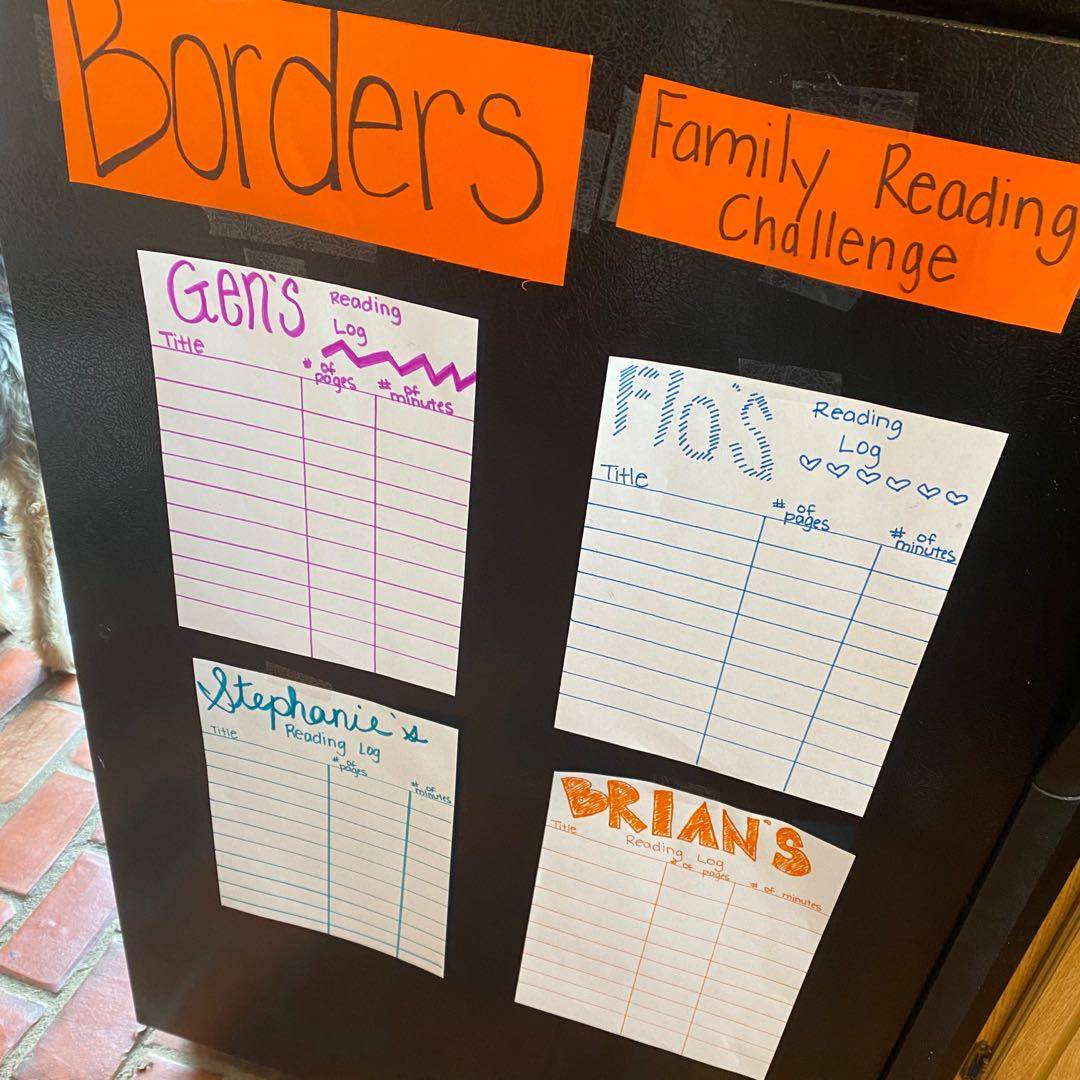 Borders
Family Reading
Challenge
Gen's
Reading
Log
Title
# of
pages
# of
minutes
Flo's
Reading
Log
Title
# of
pages
# of
minutes
Stephanie's
Reading Log
Title
# of
pages
# of
minutes
BRIAN'S
Reading Log
Title
# of pages
# of minutes